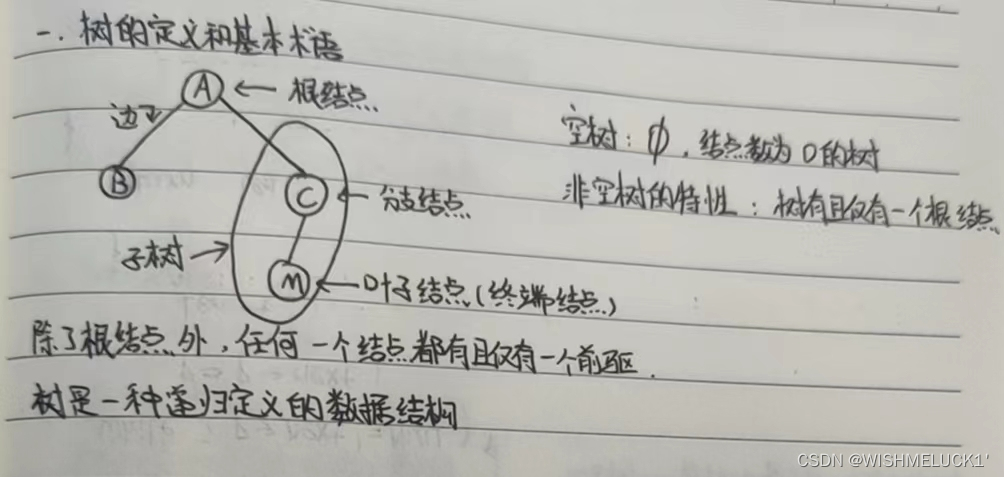 一. 树的定义和基本术语
A ← 根结点
边
B
空树: ∅, 结点数为0的树
C ← 分支结点
非空树的特性: 树有且仅有一个根结点
子树 →
M ← 叶子结点(终端结点)
除了根结点外, 任何一个结点都有且仅有一个前驱.
树是一种递归定义的数据结构
CSDN @WISHMELUCK1'